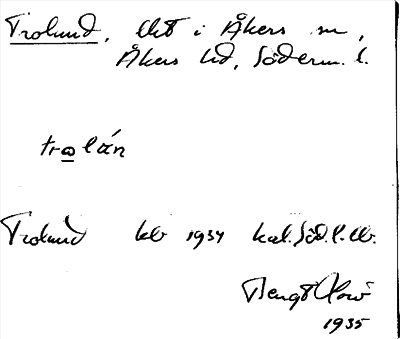 Trolund, ckt i Åkers sn,
Åkers hd, Söderm. l.
trolán
Trolund kb 1934 kal. Söd. l. lb.
Bengt
1935